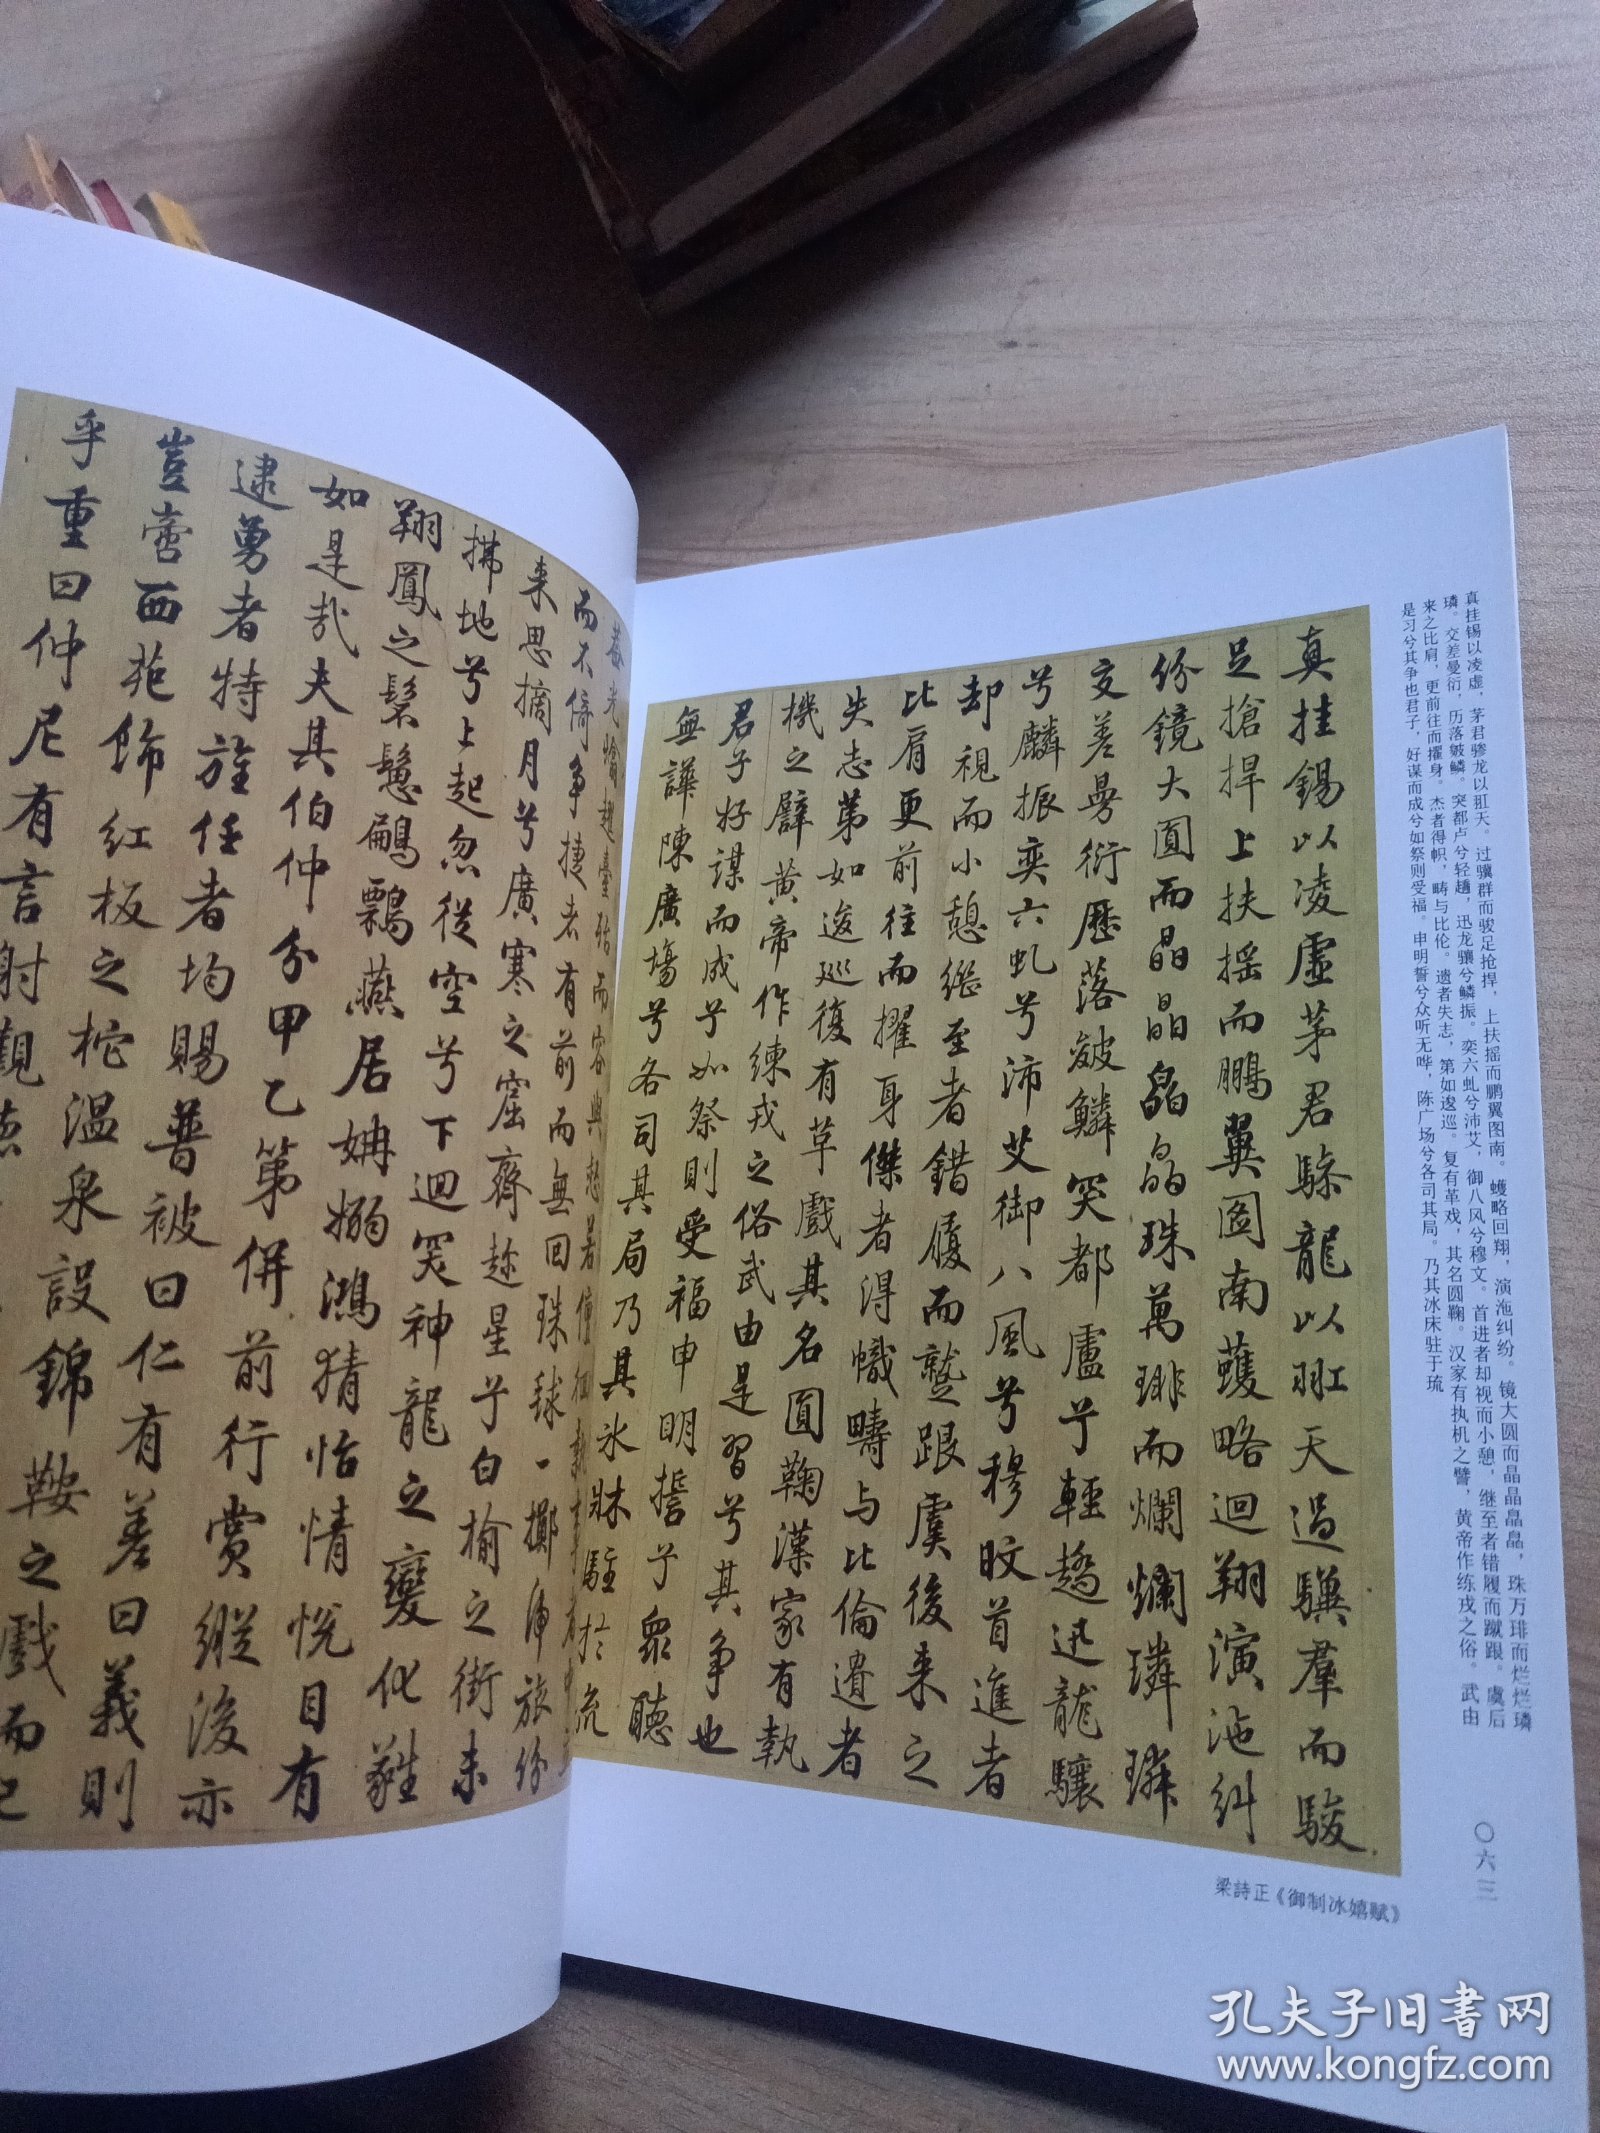 真挂锡以凌虚，茅君骖龙以羾天。过骥群而骏足抢捍，上扶摇而鹏翼图南。蠖略回翔，演沲纠纷。镜大圆而晶晶皛皛，珠万琲而烂烂璘
璘。交差曼衍，历落皴鳞。突都卢兮轻趫，迅龙骧兮鳞振。奕六虬兮沛艾，御八风兮穆文。首进者却视而小憩，继至者错履而蹴跟。虞后
来之比肩，更前往而擢身。杰者得帜，畴与比伦。遗者失志，第如逡巡。复有革戏，其名圆鞠。汉家有执机之譬，黄帝作练戎之俗。武由
是习兮其争也君子，好谋而成兮如祭则受福。申明誓兮众听无哗，陈广场兮各司其局。乃其冰床驻于琉
真挂錫以凌虛茅君驂龍以羾天過驥羣而駿
足搶捍上扶摇而鵬翼圖南蠖略迴翔演沲糾
份鏡大圓而晶晶皛皛珠萬琲而爛爛璘璘
交差曼衍歷落皴鱗突都盧兮輕趫迅龍驤
兮麟振奕六虬兮沛艾御八風兮穆旼首進者
却視而小憩繼至者錯履而蹵跟虞後来之
比肩更前往而擢身傑者得幟疇与比倫遺者
失志第如逡巡復有革戲其名圓鞠漢家有執
機之譬黄帝作練戎之俗武由是習兮其争也
君子好謀而成兮如祭則受福申明誓兮衆聽
無譁陳廣場兮各司其局乃其氷牀駐於流
而不倚争捷者有前而無回珠毬一擲
来思摘月兮廣寒之窟齊趂星兮白榆之街未
拂地兮上起忽從空兮下迴突神龍之變化
翔鳳之鬈鬆鶣鷅燕居姌嫋鴻猜怡情悦目有
如是哉夫其伯仲分甲乙第併前行賞縱後亦
逮勇者特旌任者均賜普被曰仁有差曰義則
豈啻西苑飾紅板之柁温泉設錦鞍之戲而已
乎重曰仲尼有言射觀
梁詩正《御制冰嬉赋》
〇六三
孔夫子旧书网
www.kongfz.com